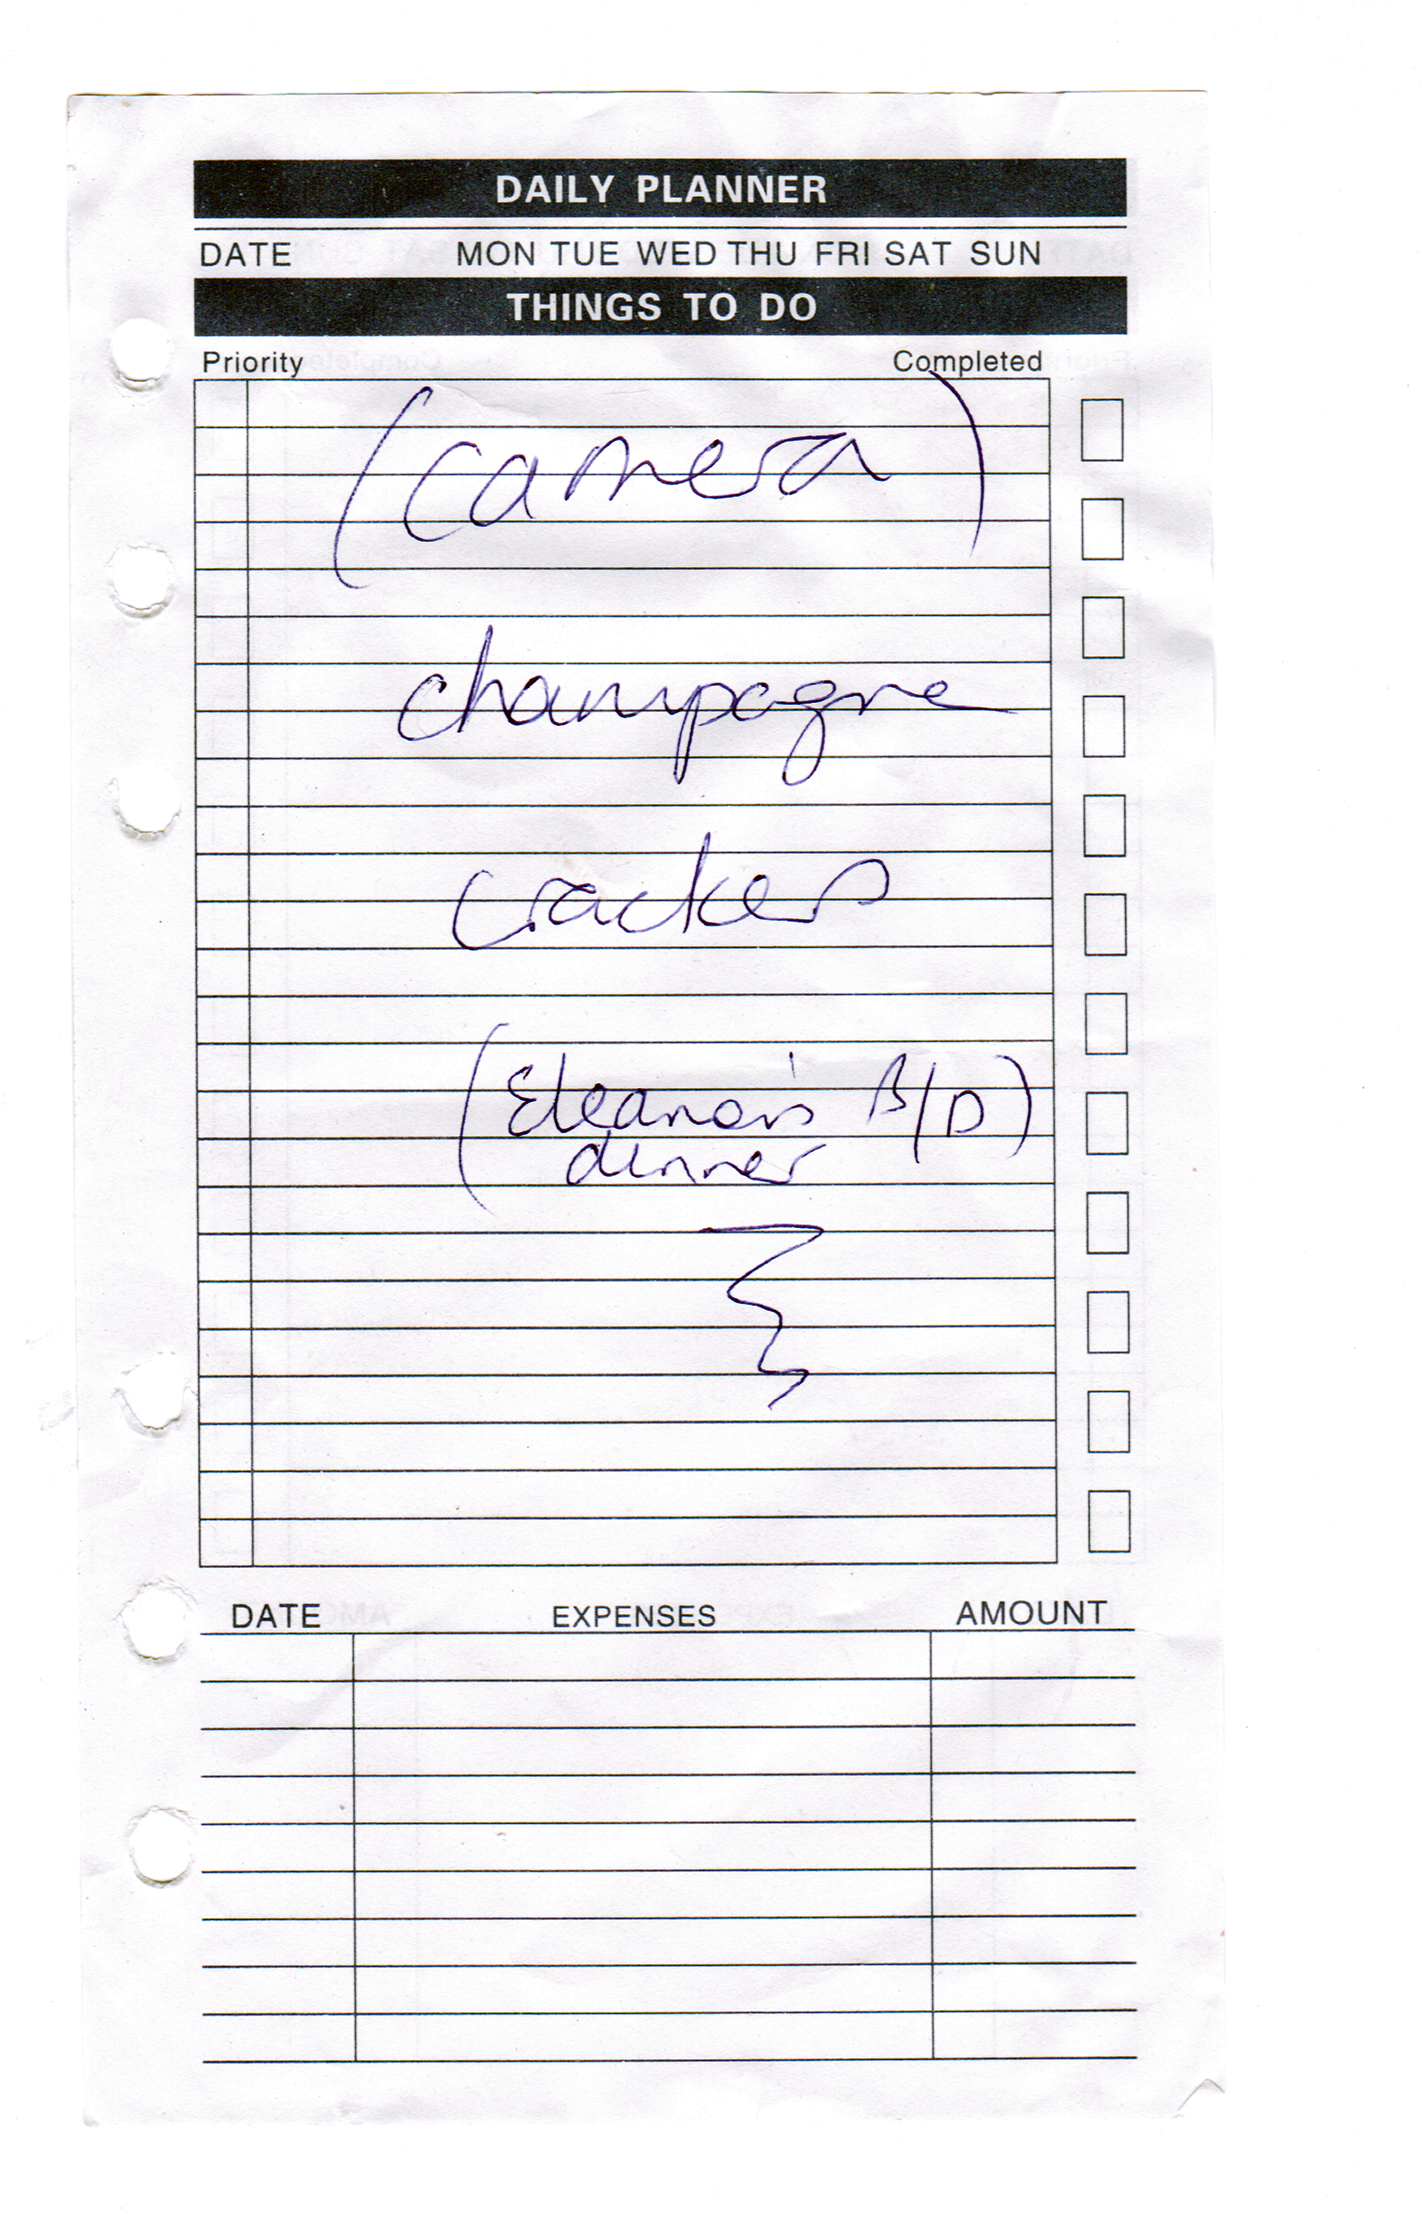 DAILY PLANNER
DATE MON TUE WED THU FRI SAT SUN
THINGS TO DO
Priority Completed
(camera)
champagne
crackers
(Eleanor's B/D)
dinner
DATE EXPENSES AMOUNT